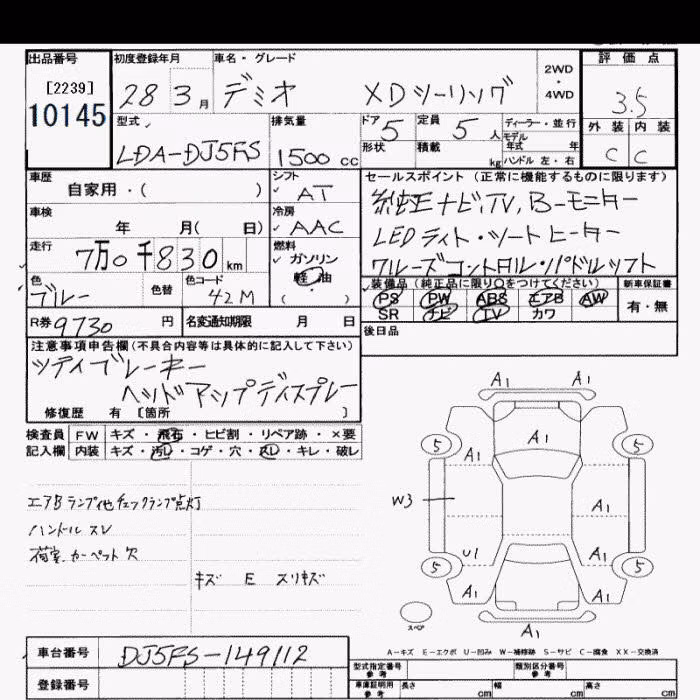 出品番号 初度登録年月 車名・グレード 2WD・4WD 評価点
[2239] 28 3月 デミオ XDツーリング 3.5
10145
型式 排気量 ドア 定員 ディーラー・並行 外装 内装
LDA-DJ5FS 1500cc 5 5人 モデル年式 年 C C
形状 積載 kg ハンドル 左・右
車歴 シフト セールスポイント(正常に機能するものに限ります)
自家用・( ) AT 純正ナビ,TV,Bーモニター
車検 冷房
年 月( 日) AAC LEDライト・シートヒーター
走行 燃料
7万0千830km ガソリン クルーズコントロル・パドルシフト
色 色替 色コード 軽油 装備品(純正品に限り○をつけてください) 新車保証書
ブルー 42M ・( ) PS PW ABS エアB AW 有・無
SR ナビ TV カワ
R券 9730円 名変通知期限 月 日 後日品
注意事項申告欄(不具合内容等は具体的に記入して下さい)
シティブレーキー
ヘッドアップディスプレー
修復歴 有 [箇所 ]
検査員 FW キズ・飛石・ヒビ割・リペア跡・×要
記入欄 内装 キズ・汚レ・コゲ・穴・スレ・キレ・破レ
エアBランプ他チェックランプ点灯
ハンドルスレ
荷室カーペット欠
キズ E スリキズ
A1 A1
A1
5 5
A1
W3 A1
U1 A1
5 5
A1 A1
スペア A1
A-キズ E-エクボ U-凹み W-補修跡 S-サビ C-腐食 XX-交換済
車台番号 DJ5FS-149112 型式指定番号 参考 類別区分番号 参考
登録番号 車庫証明用 参考 長さ cm 幅 cm 高さ cm